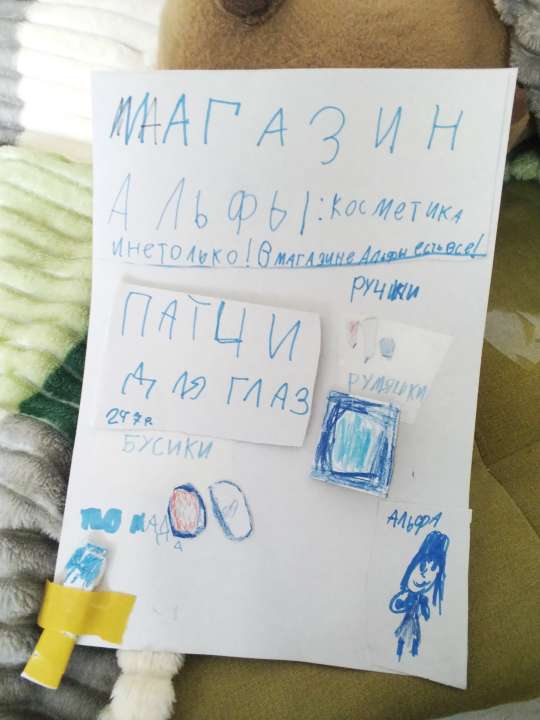 МАГАЗИН
АЛЬФЫ: КОСМЕТИКА
И НЕТОЛЬКО! В МАГАЗИНЕ Альфы есть все!
РУЧКИ
ПАТЧИ
ДЛЯ ГЛАЗ
247р.
РУМЯНЫКИ
БУСИКИ
ПОМАДА
АЛЬФА